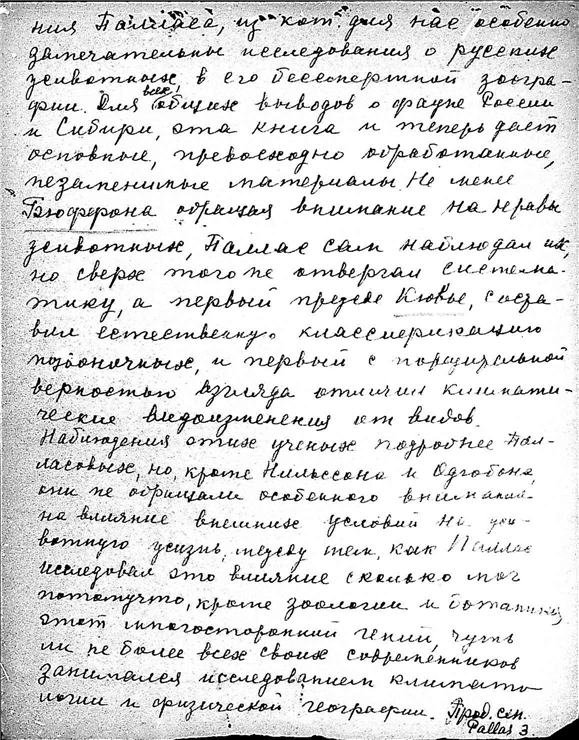 ния Палласа, из кот для нас особенно
замечательны исследования о русских
животных, в его бессмертной зоогра-
фии. Для всех общих выводов о фауне России
и Сибири, эта книга и теперь дает
основные, превосходно обработанные,
незаменимые материалы. Не менее
Бюффона обращая внимание на нравы
животных, Паллас сам наблюдал их,
но сверх того не отвергал система-
тику, а первый прежде Кювье, соста-
вил естественную классификацию
позвоночных, и первый с поразительной
верностью взгляда отличил климати-
ческие видоизменения от видов.
Наблюдения этих ученых подробнее Пал-
ласовых, но, кроме Нильссона и Одюбона,
они не обращали особенного внимания
на влияние внешних условий на жи-
вотную жизнь, между тем, как Паллас
исследовал это влияние сколько мог
потомучто, кроме зоологии и ботаники,
этот многосторонний гений, чуть
ли не более всех своих современников
занимался исследованием климато-
логии и физической географии. Прод. см.
Pallas 3.